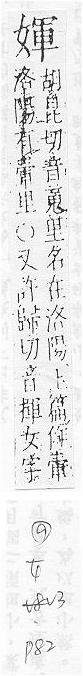 媈
胡昆切音䰟里名在洛陽上篇
洛陽有里〇又許歸切音揮女字
⑨
女
P82